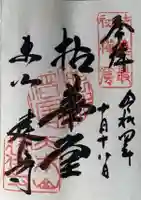 奉拝
令和四年
十月十八日
拈華堂
東山 建仁寺